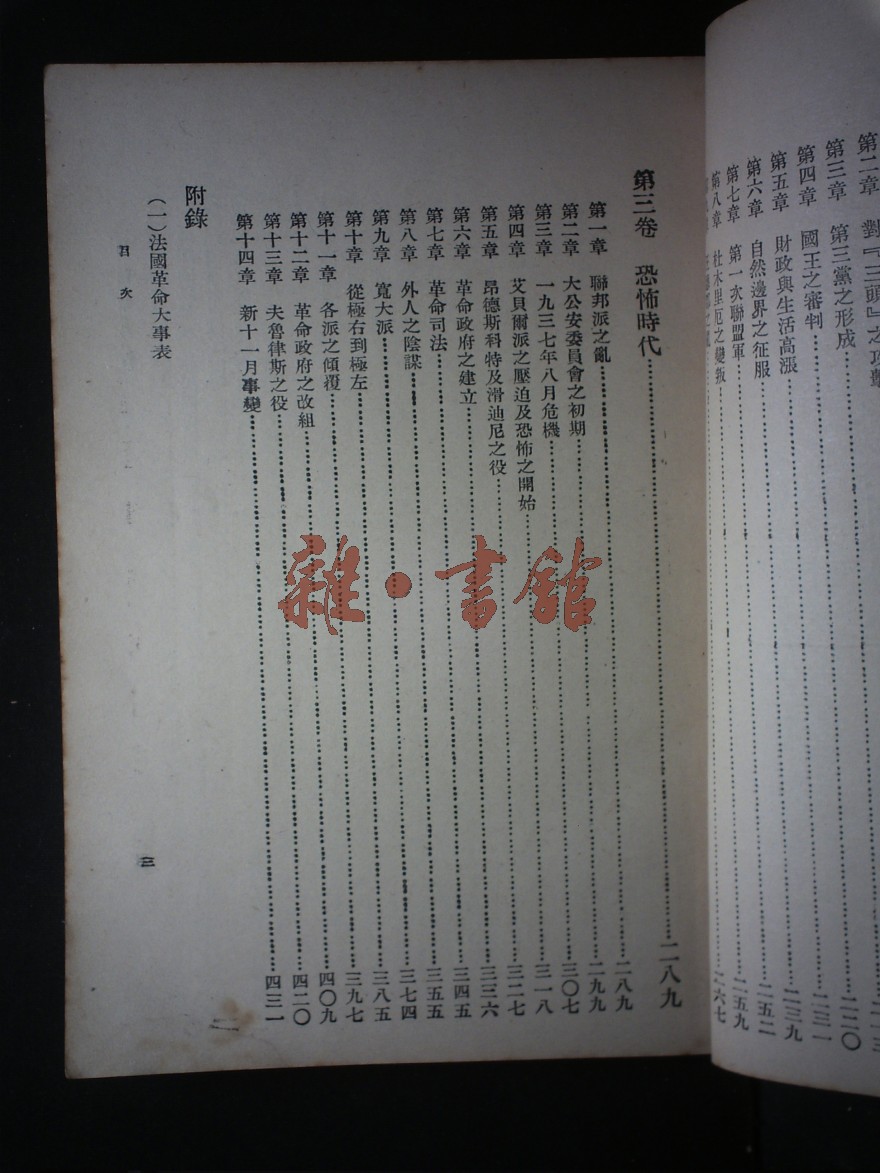 第二章 對『三頭』之攻擊
第三章 第三黨之形成……二二〇
第四章 國王之審判……二三一
第五章 財政與生活高漲……二三九
第六章 自然邊界之征服……二五二
第七章 第一次聯盟軍……二五九
第八章 杜木里厄之變叛……二六七
第三卷 恐怖時代……二八九
第一章 聯邦派之亂……二八九
第二章 大公安委員會之初期……二九九
第三章 一九三七年八月危機……三〇七
第四章 艾貝爾派之壓迫及恐怖之開始……三一八
第五章 昂德斯科特及滑迪尼之役……三二七
第六章 革命政府之建立……三三六
第七章 革命司法……三四五
第八章 外人之陰謀……三五五
第九章 寬大派……三七四
第十章 從極右到極左……三八五
第十一章 各派之傾覆……三九七
第十二章 革命政府之改組……四〇九
第十三章 夫魯律斯之役……四二〇
第十四章 新十一月事變……四三一
附錄
(一)法國革命大事表
目次
三
雜·書館